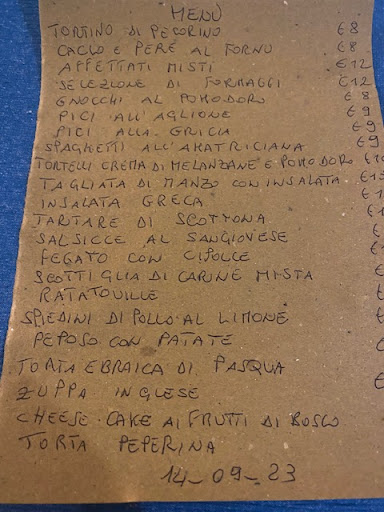 MENÙ
TORTINO DI PECORINO €8
CACIO E PERE AL FORNO €8
AFFETTATI MISTI €12
SELEZIONE DI FORMAGGI €12
GNOCCHI AL POMODORO €8
PICI ALL'AGLIONE €9
PICI ALLA GRICIA €9
SPAGHETTI ALL'AMATRICIANA €9
TORTELLI CREMA DI MELANZANE E POMODORO
TAGLIATA DI MANZO CON INSALATA
INSALATA GRECA
TARTARE DI SCOTTONA
SALSICCE AL SANGIOVESE
FEGATO CON CIPOLLE
SCOTTIGLIA DI CARNE MISTA
RATATOUILLE
SPIEDINI DI POLLO AL LIMONE
PEPOSO CON PATATE
TORTA EBRAICA DI PASQUA
ZUPPA INGLESE
CHEESE-CAKE AI FRUTTI DI BOSCO
TORTA PEPERINA
14-09-23